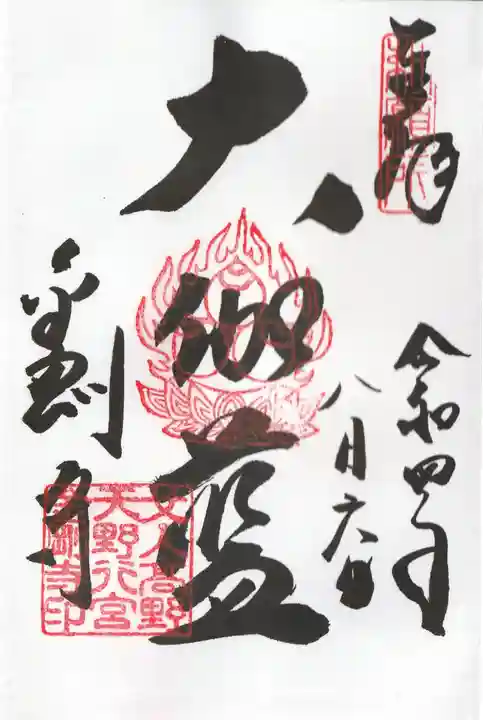 奉拝
令和四年
八月六日
大伽藍
金剛寺
女人高野
天野行宮
金剛寺印